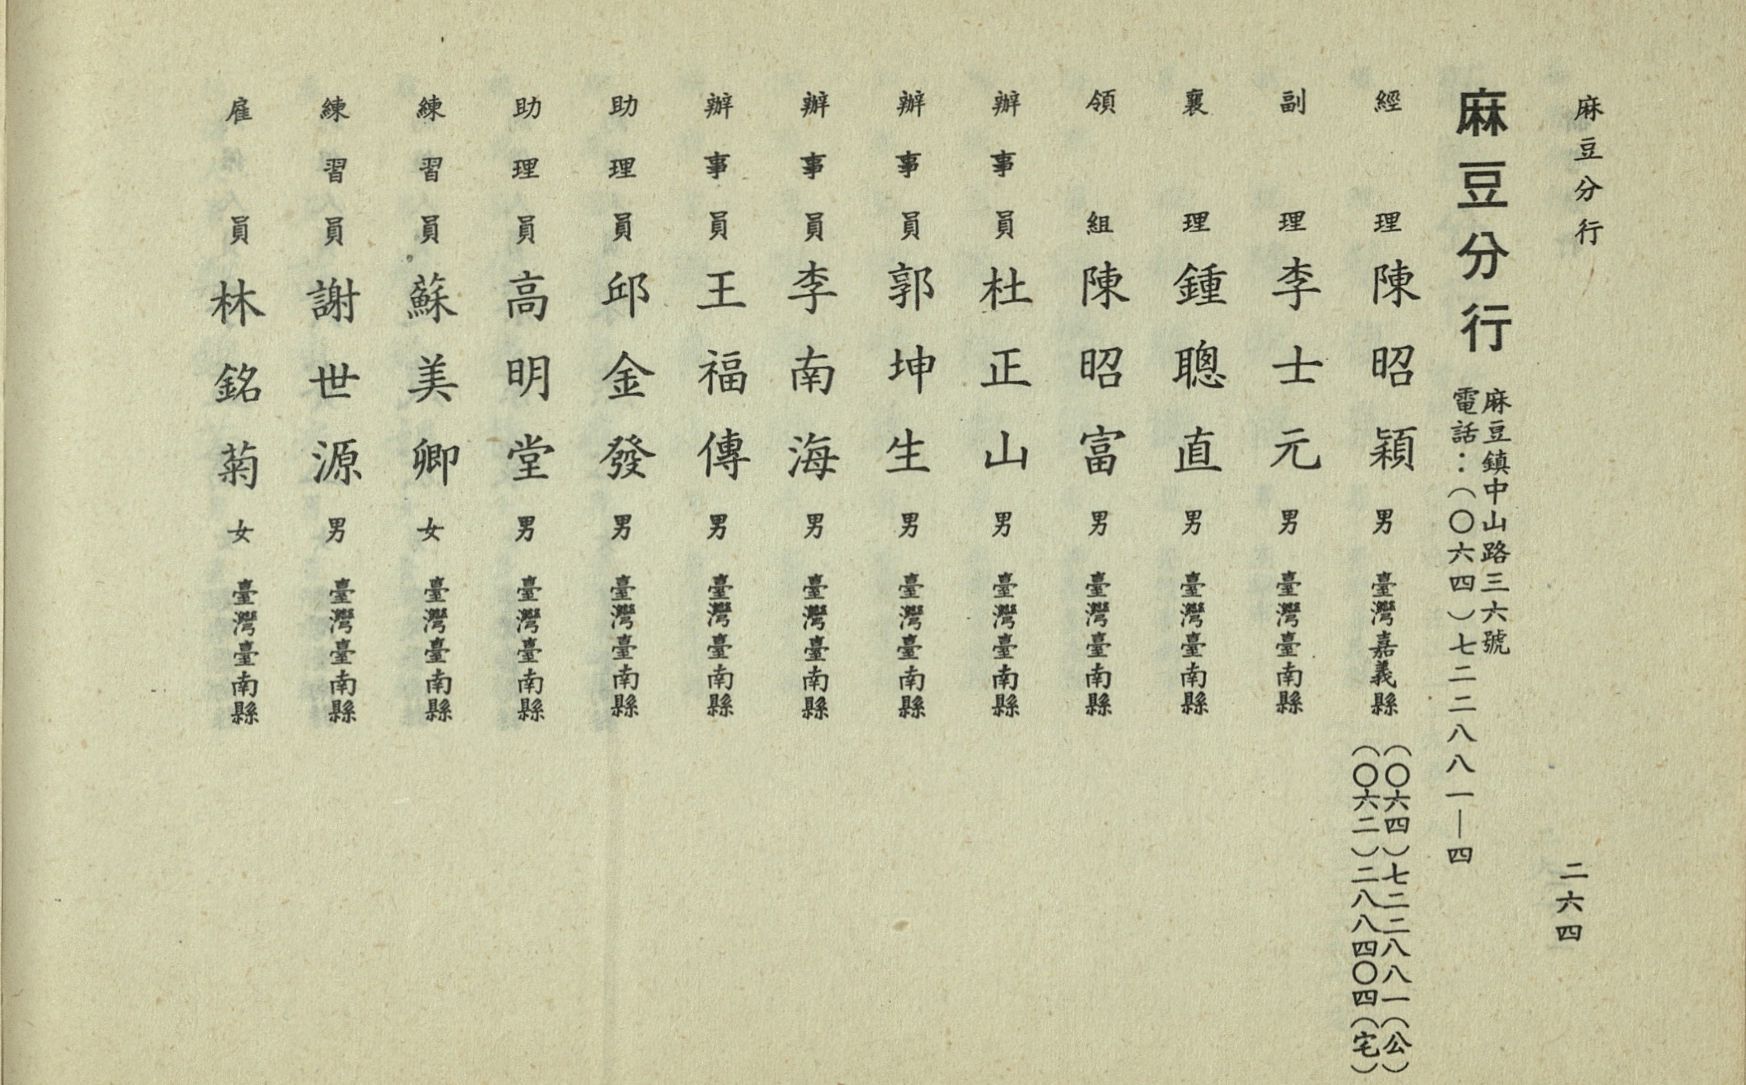 麻豆分行
二六四
麻豆分行
麻豆鎮中山路三六號
電話：（〇六四）七二二八八一—四
經理陳昭穎男臺灣嘉義縣
（〇六四）七二二八八一（公）
（〇六二）二八八四〇四（宅）
副理李士元男臺灣臺南縣
襄理鍾聰直男臺灣臺南縣
領組陳昭富男臺灣臺南縣
辦事員杜正山男臺灣臺南縣
辦事員郭坤生男臺灣臺南縣
辦事員李南海男臺灣臺南縣
辦事員王福傳男臺灣臺南縣
助理員邱金發男臺灣臺南縣
助理員高明堂男臺灣臺南縣
練習員蘇美卿女臺灣臺南縣
練習員謝世源男臺灣臺南縣
雇員林銘菊女臺灣臺南縣